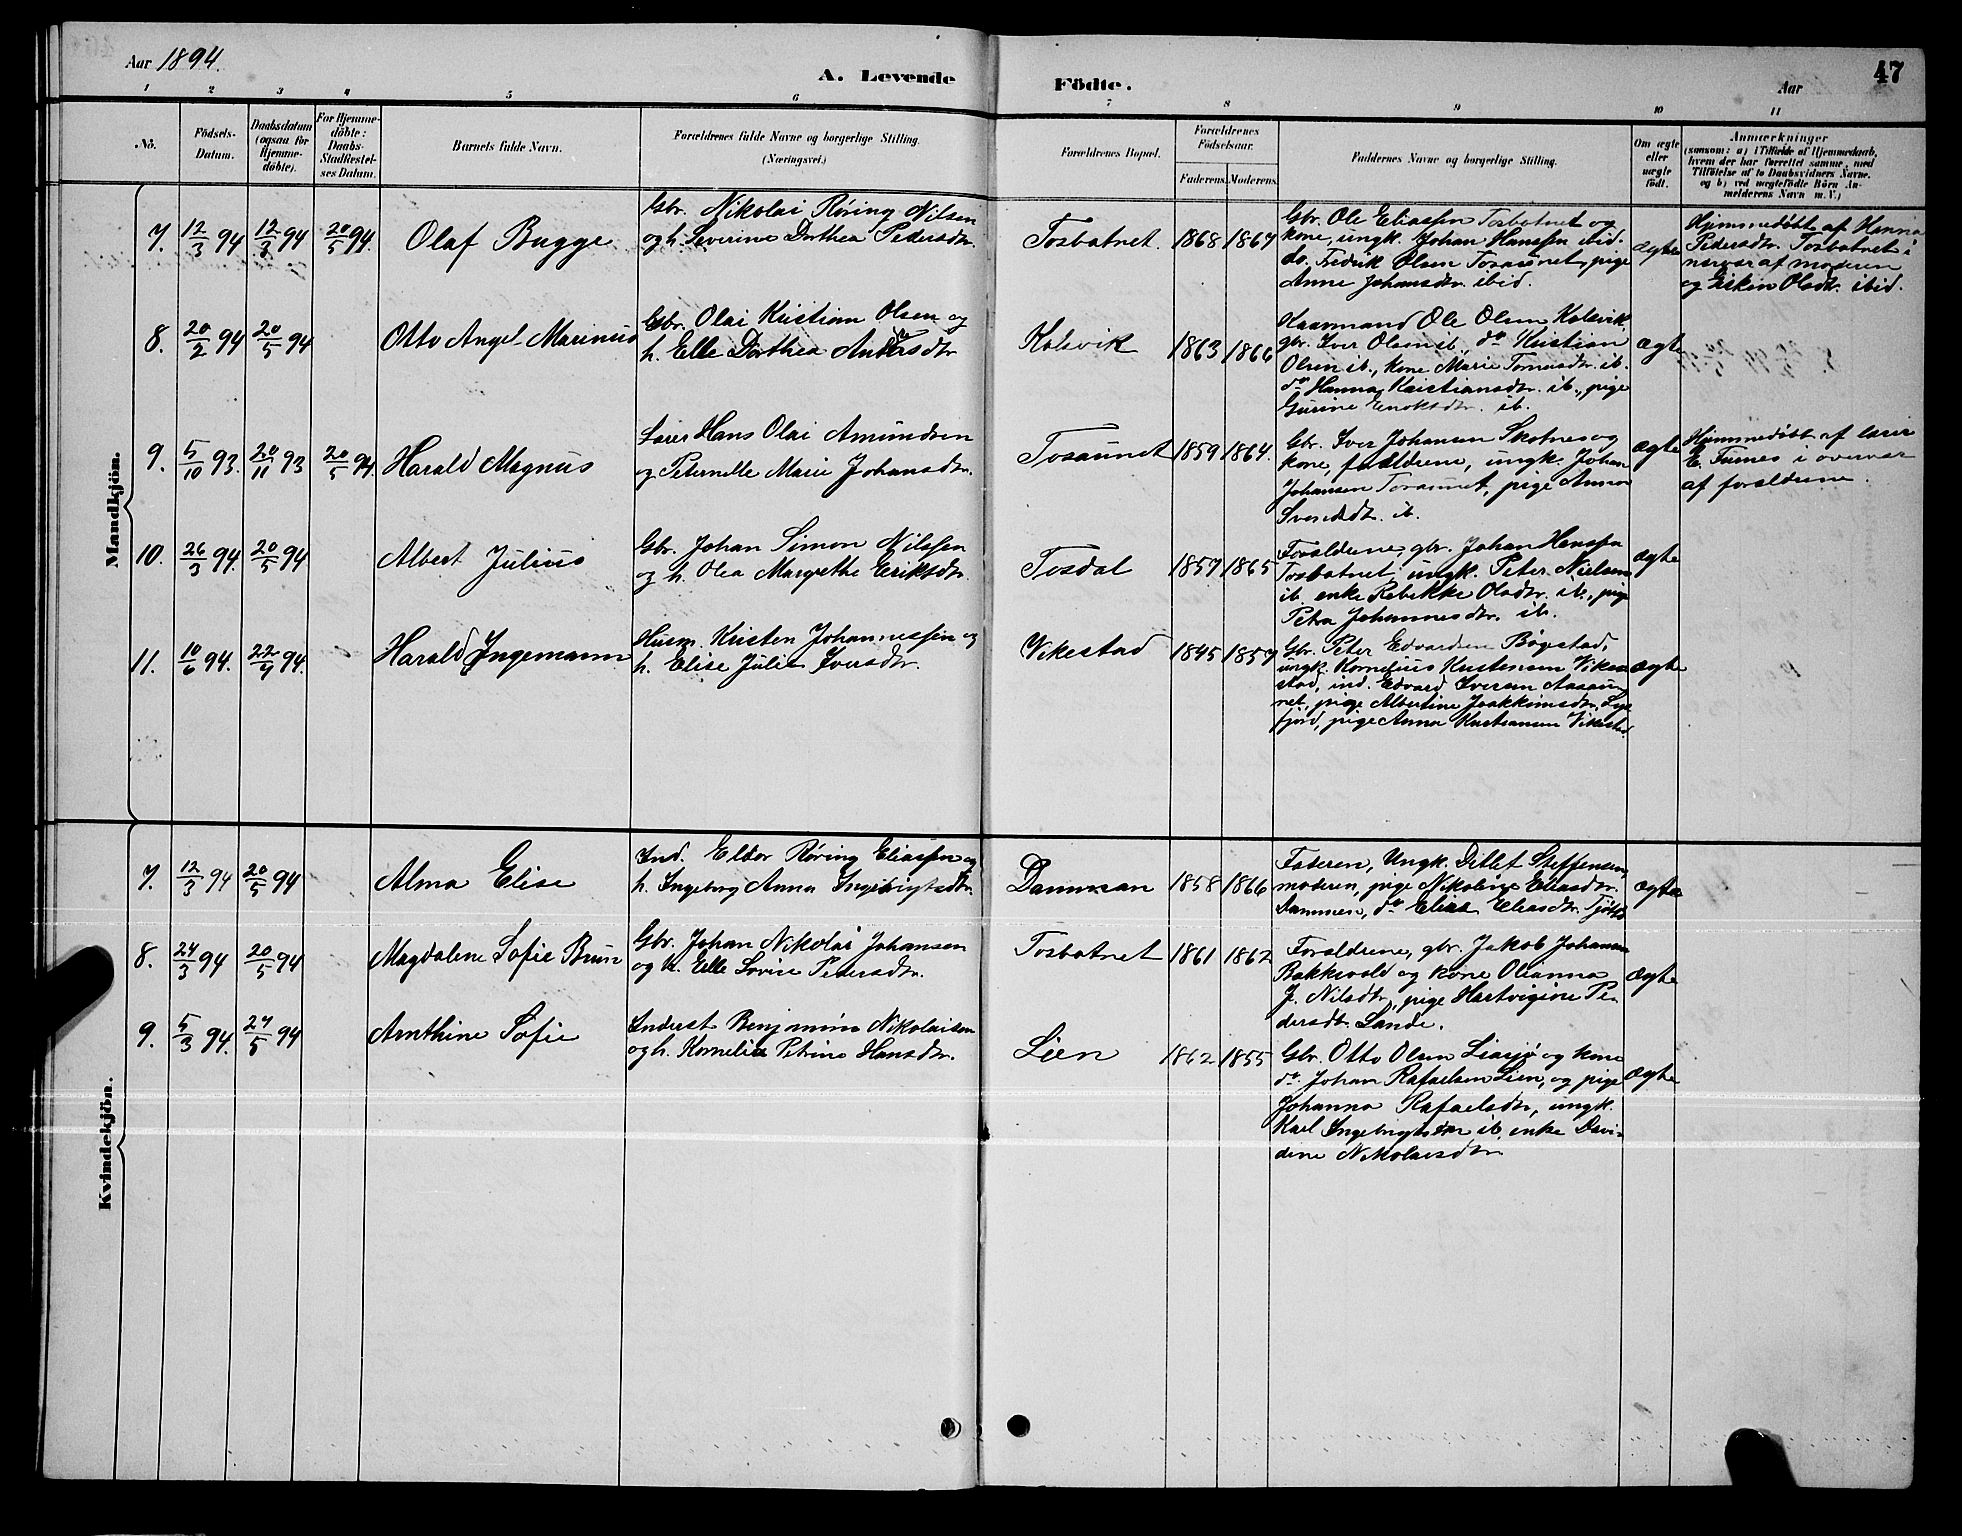 Aar 1894.
A. Levende Födte.
Aar
47
1 2 3 4 5 6 7 8 9 10 11
No.
Födsels-
Datum.
Daabsdatum
(ogsaa for
Hjemme-
döbte).
For Hjemme-
döbte:
Daabs-
Stadfæstel-
ses Datum.
Barnets fulde Navn.
Forældrenes fulde Navne og borgerlige Stilling.
(Næringsvei.)
Forældrenes Bopæl.
Forældrenes
Födselsaar.
Faderens. Moderens.
Faddernes Navne og borgerlige Stilling.
Om ægte
eller
uægte
födt.
Anmærkninger
(saasom: a) i Tilfælde af Hjemmedaab,
hvem der har forrettet samme, med
Tilföielse af to Daabsvidners Navne.
og b) ved uægtefödte Börn An-
melderens Navn m. V.)
Mandkjön.
7. 12/3 94 12/3 94 20/5 94. Olaf Bugge
Gbr. Nikolai Røring Nilsen
og h. Severine Dorthea Pedersdtr.
Tosbotnet. 1868 1867
Gbr. Ole Eliassen Tosbotnet og
kone, ungk. Johan Hanssen ibid.
do. Fredrik Olsen Tosaunet, pige
Anne Johansdtr. ibid.
ægte
Hjemmedøbt af Hanna
Pedersdtr. Tosbotnet i
nærvær af moderen
og Olsdtr. ibid.
8. 20/2 94 20/5 94 Otto Angel Marinus
Gbr. Olai Kristian Olsen og
h. Elle Dorthea Andersdtr
Kolsvik 1863 1866
Kaarmand Ole Olsen Kolsvik,
gbr. Iver Olsen ib., do Kristian
Olsen ib., kone Marie Tomasdtr. ib.
do Hanna Kristiansdtr. ib., pige
Gurine Enoksdtr. ib.
ægte
9. 5/10 93. 20/11 93 20/5 94. Harald Magnus
Lærer Hans Olai Amundsen
og Peternelle Marie Johansdtr.
Tosaunet 1859 1864.
Gbr. Iver Johansen Skotnes og
kone, forældrene, ungk. Johan
Johansen Tosaunet, pige Anna
Svendsdtr. ib.
ægte
Hjemmedøbt af lærer
E. Furnes i overvær
af forældrene.
10. 26/3 94. 20/5 94 Albert Julius
Gbr. Johan Simon Nilssen
og h. Olea Margrethe Eriksdtr.
Tosdal 1857 1865
Forældrene, gbr. Johan Hanssen
Tosbotnet, ungk. Peter Nielsen
ib. enke Rebekke Olsdtr. ib., pige
Petra Johannesdtr. ib.
ægte
11. 10/6 94. 22/9 94. Harald Ingemann
Husm. Kristen Johannessen og
h. Elise Julie Iversdtr.
Vikestad 1845 1857
Gbr. Peter Edvardsen Bøgstad,
ungk. Kornelius Kristensen Vike-
stad, ind. Edvard Iversen Aasaun-
net, pige Albertine Joakkimsdtr.
fjord, pige Anna Kristiansen Vikestad.
ægte
Kvindekjön.
7. 12/3 94 20/5 94 Alma Elise
Ind. Eldor Røring Eliassen og
h. Ingeborg Anna Ingebrigtsdtr.
Dammen 1858 1866
Faderen, Ungk. Ditlef Steffensen,
moderen, pige Nikoline Eliasdtr.
Dammen, do Elise Eliasdtr.
ægte
8. 24/3 94 20/5 94 Magdalene Sofie Brun
Gbr. Johan Nikolai Johansen
og h. Elle Lovise Pedersdtr.
Tosbotnet 1861 1862
Forældrene, gbr. Jakob Johansen
Bakkevold og kone Olianna
J. Nilsdtr., pige Hartvigine Pe-
dersdt. Lande.
ægte
9. 5/3 94. 27/5 94 Arnthine Sofie
Inderst Benjamin Nikolaisen
og h. Kornelia Petrine Hansdtr.
Lien 1862 1855
Gbr. Otto Olsen Liasjø og kone
do. Johan Rafaelsen Lien, og pige
Johanna Rafaelsdtr, ungk.
Karl Ingebrigtsen ib. enke Davi-
dine Nikolaisdtr.
ægte